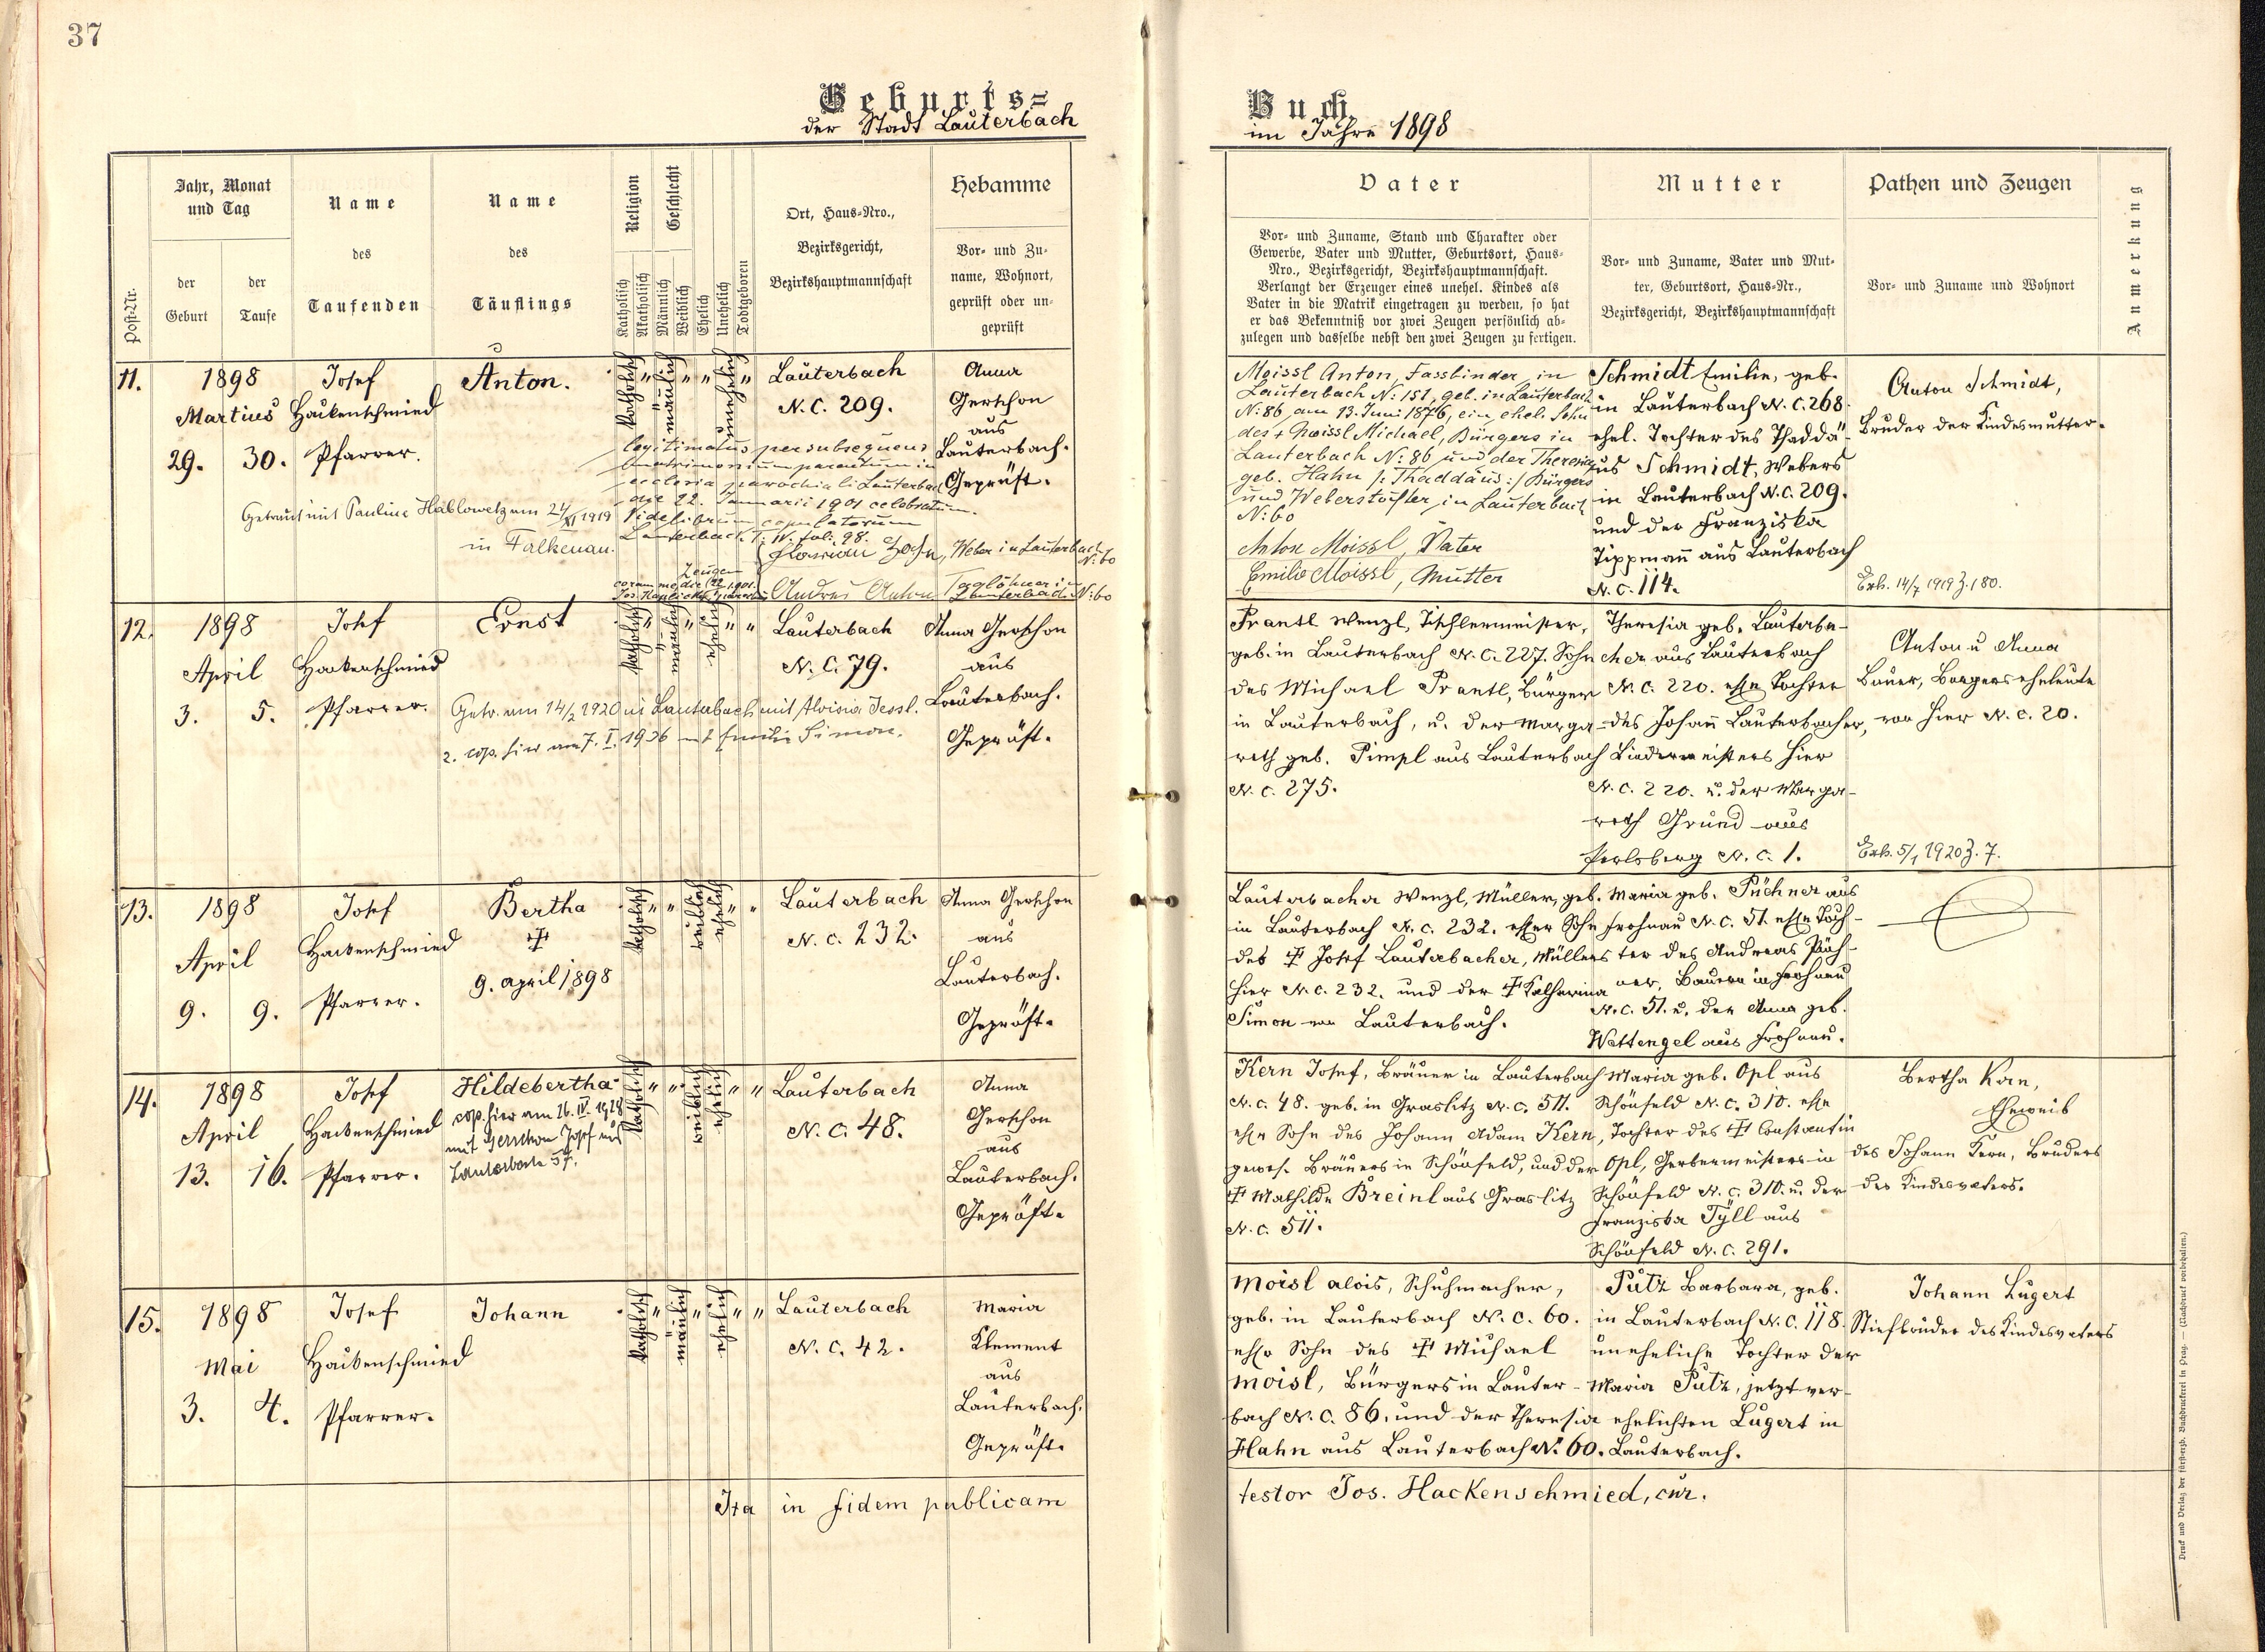 37
Geburts=
der Stadt Lauterbach
Jahr, Monat
und Tag
Name
des
Taufenden
Name
des
Täuflings
Religion
Geschlecht
Ort, Haus-Nro.,
Bezirksgericht,
Bezirkshauptmannschaft
Hebamme
Post-Nr.
der
Geburt
der
Taufe
Katholisch
Akatholisch
Männlich
Weiblich
Ehelich
Unehelich
Todtgeboren
Vor- und Zu-
name, Wohnort,
geprüft oder un-
geprüft
11.
1898
Martius
29. 30.
Josef
Hackenschmied
Pfarrer.
Anton.
katholisch " mänlich " " unehelich "
Lauterbach
N. C. 209.
Anna
Gerschon
aus
Lauterbach.
Geprüft.
legitimatus per subsequens
matrimonium parentum in
ecclesia parochiali Lauterbach
die 22. Januarii 1901 celebratum.
Vide librum copulatorum
Lauterbach T. IV. fol. 98.
Getraut mit Pauline Hablowetz am 24/XI 1919
in Falkenau.
Zeugen
coram me die 22/1 1901.
Weber in Lauterbach
N: 60
Andres Anton Taglöhner in
Lauterbach N: 60
12.
1898
April
3. 5.
Josef
Hackenschmied
Pfarrer.
Ernst
katholisch " mänlich " ehelich " "
Lauterbach
N. C. 79.
Anna Gerschon
aus
Lauterbach.
Geprüft.
Getr. am 14/2 1920 in Lauterbach mit Aloisia Jessl.
2. cop. hier am 7. I. 1936 mit Emilie Simon.
13.
1898
April
9. 9.
Josef
Hackenschmied
Pfarrer.
Bertha
✝
9. april 1898
katholisch " " weiblich ehelich " "
Lauterbach
N. C. 232.
Anna Gerschon
aus
Lauterbach.
Geprüft.
14.
1898
April
13. 16.
Josef
Hackenschmied
Pfarrer.
Hildebertha
cop. hier am 26. IV. 1928
mit Gerschon Josef aus
Lauterbach 57.
katholisch " " weiblich ehelich " "
Lauterbach
N. C. 48.
Anna
Gerschon
aus
Lauterbach.
Geprüft.
15.
1898
Mai
3. 4.
Josef
Hackenschmied
Pfarrer.
Johann
katholisch " mänlich " ehelich " "
Lauterbach
N. C. 42.
Maria
Klement
aus
Lauterbach.
Geprüft.
Ita in fidem publicam
Buch
im Jahre 1898
Vater
Mutter
Pathen und Zeugen
Anmerkung
Vor- und Zuname, Stand und Charakter oder
Gewerbe, Vater und Mutter, Geburtsort, Haus-
Nro., Bezirksgericht, Bezirkshauptmannschaft.
Verlangt der Erzeuger eines unehel. Kindes als
Vater in die Matrik eingetragen zu werden, so hat
er das Bekenntniß vor zwei Zeugen persönlich ab-
zulegen und dasselbe nebst den zwei Zeugen zu fertigen.
Vor- und Zuname, Vater und Mut-
ter, Geburtsort, Haus-Nr.,
Bezirksgericht, Bezirkshauptmannschaft
Vor- und Zuname und Wohnort
Moissl Anton, Fassbinder in
Lauterbach N: 151, geb. in Lauterbach
N: 86, am 13. Juni 1876, ein ehel. Sohn
des + Moissl Michael, Bürgers in
Lauterbach N: 86 und der Theresia
geb. Hahn /: Thaddäus :/ Bürgers
und Weberstochter in Lauterbach
N: 60
Anton Moissl, Vater
Emilie Moissl, Mutter
Schmidt Emilie, geb.
in Lauterbach N. C. 268.
ehel. Tochter des Thaddä-
us Schmidt, Webers
in Lauterbach N. C. 209.
und der Franziska
Tippmañ aus Lauterbach
N. C. 114.
Anton Schmidt,
Bruder der Kindesmutter.
Exh. 14/7 1919 Z. 180.
Prantl Wenzl, Tischlermeister,
geb. in Lauterbach N. C. 227. Sohn
des Michael Prantl, Bürger
in Lauterbach, u. der Marga-
reth geb. Pimpl aus Lauterbach
N. C. 275.
Theresia geb. Lauterba-
cher aus Lauterbach
N. C. 220. ehle Tochter
des Johañ Lauterbacher,
Bindermeisters hier
N. C. 220. u. der Marga-
reth Grund aus
Perlsberg N. C. 1.
Anton u Anna
Bauer, Bürgerseheleute
von hier N. C. 20.
Exh. 5/1 1920 Z. 7.
Lauterbacher Wenzl, Müller, geb.
in Lauterbach N. C. 232. ehler Sohn
des ✝ Josef Lauterbacher, Müllers
hier N. C. 232. und der ✝ Katharina
Simon von Lauterbach.
Maria geb. Püchner aus
Frohnau N. C. 51. ehle Toch-
ter des Andreas Püch-
ner, Bauern in Frohnau
N. C. 51. u. der Anna geb.
Wettengel aus Frohnau.
Kern Josef, Bräuer in Lauterbach
N. C. 48. geb. in Graslitz N. C. 511.
ehlr Sohn des Johann Adam Kern,
gewes. Bräuers in Schönfeld, und der
✝ Mathilde Breinl aus Graslitz
N. C. 511.
Maria geb. Opl aus
Schönfeld N. C. 310. ehle
Tochter des ✝ Constantin
Opl, Gerbermeisters in
Schönfeld N. C. 310. u. der
Franziska Tyll aus
Schönfeld N. C. 291.
Bertha Kern,
Eheweib
des Johann Kern, Bruders
des Kindesvaters.
Moisl Alois, Schuhmacher,
geb. in Lauterbach N. C. 60.
ehlr Sohn des ✝ Michael
Moisl, Bürgers in Lauter-
bach N. C. 86. und der Theresia
Hahn aus Lauterbach N: 60.
Pütz Barbara, geb.
in Lauterbach N. C. 118.
uneheliche Tochter der
Maria Pütz, jetzt ver-
ehelichten Lugert in
Lauterbach.
Johann Lugert
Stiefbruder des Kindesvaters
testor Jos. Hackenschmied, cur.
Druck und Verlag der fürsterzb. Buchdruckerei in Prag. — (Nachdruck vorbehalten.)